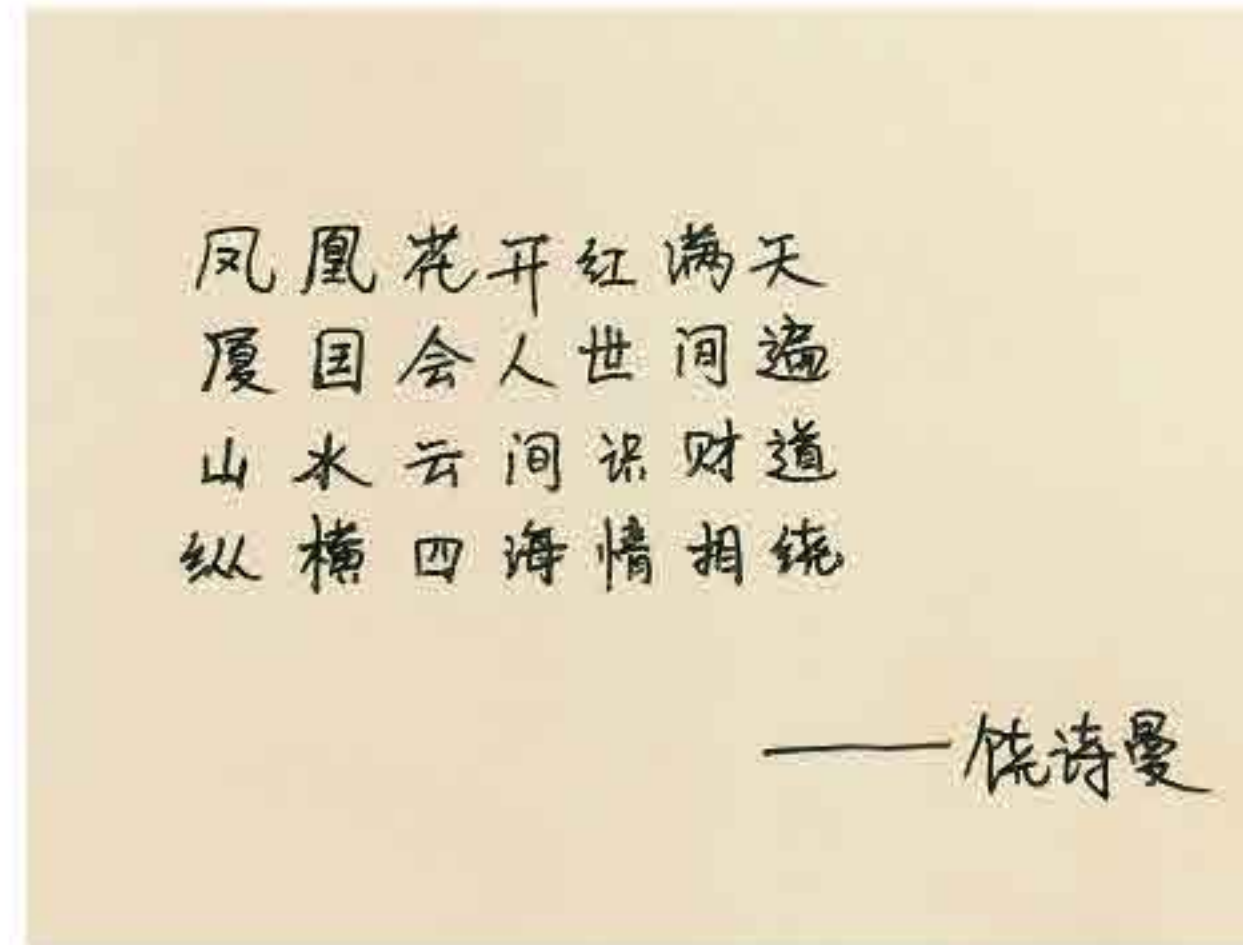 凤凰花开红满天
厦国会人世间遍
山水云间识财道
纵横四海情相绕
——饶诗曼